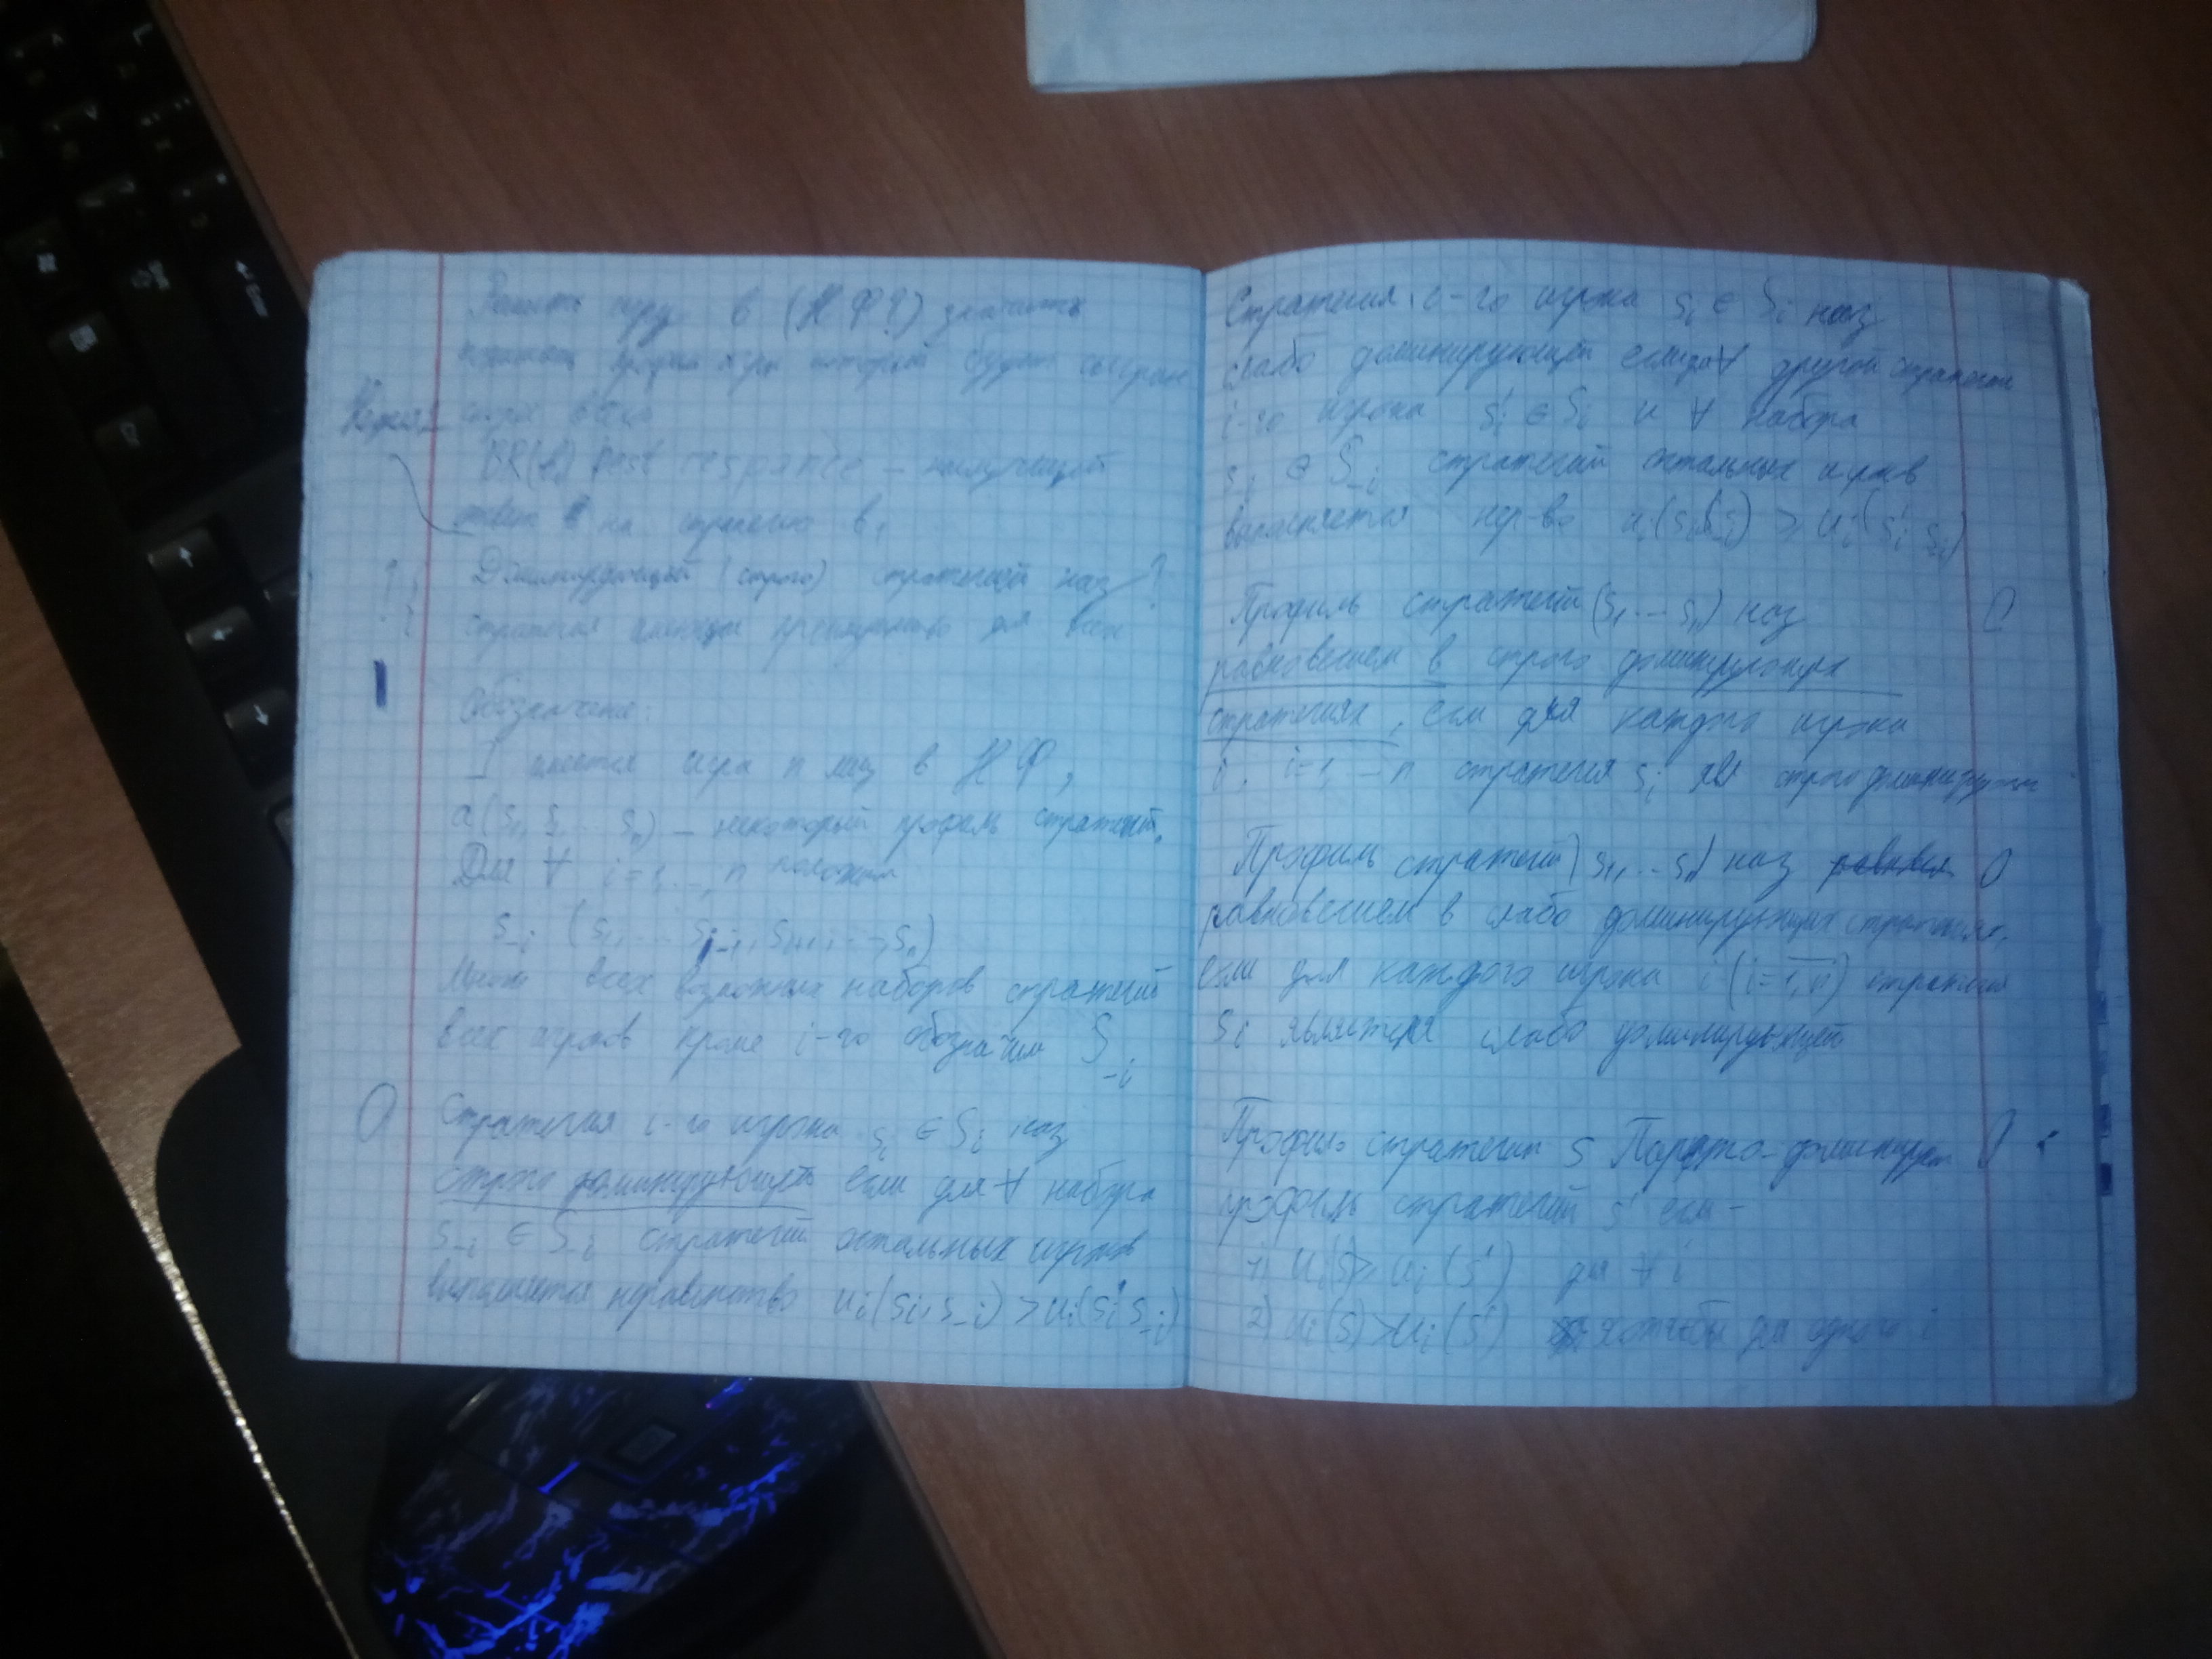 Решить игру в (НФ?) значит
который будет сыгран
BR(b₁) best responce – наилучший
ответ на стратегию b₁
Доминирующей (строго) стратегией наз ?
стратегия имеющая преимущество для всех
Обозначение:
имеется игра n лиц в НФ,
a (s₁, s₂ ... sₙ) – некоторый профиль стратегий.
Для ∀ i=1, ..., n положим
s₋ᵢ (s₁, ... sᵢ₋₁, sᵢ₊₁, ..., sₙ)
Множ всех возможных наборов стратегий
всех игроков кроме i-го обозначим S₋ᵢ
О Стратегия i-го игрока sᵢ ∈ Sᵢ наз
строго доминирующей если для ∀ набора
s₋ᵢ ∈ S₋ᵢ стратегий остальных игроков
выполняется неравенство uᵢ(sᵢ, s₋ᵢ) > uᵢ(sᵢ' s₋ᵢ)
Стратегия i-го игрока sᵢ ∈ Sᵢ наз
слабо доминирующей если для ∀ другой стратегии
i-го игрока sᵢ' ∈ Sᵢ и ∀ набора
s₋ᵢ ∈ S₋ᵢ стратегий остальных игроков
выполняется нер-во uᵢ(sᵢ s₋ᵢ) ≥ uᵢ(sᵢ' s₋ᵢ)
Профиль стратегий (s₁ ... sₙ) наз О
равновесием в строго доминирующих
стратегиях, если для каждого игрока
i, i=1, ... n стратегия sᵢ явл строго доминирующей
Профиль стратегий (s₁, ... sₙ) наз О
равновесием в слабо доминирующих стратегиях,
если для каждого игрока i (i=1,n) стратегия
sᵢ является слабо доминирующей
Профиль стратегий s Парето-доминирует О
профиль стратегий s' если –
1) uᵢ(s) ≥ uᵢ(s') для ∀ i
2) uᵢ(s) > uᵢ(s') хотя бы для одного i